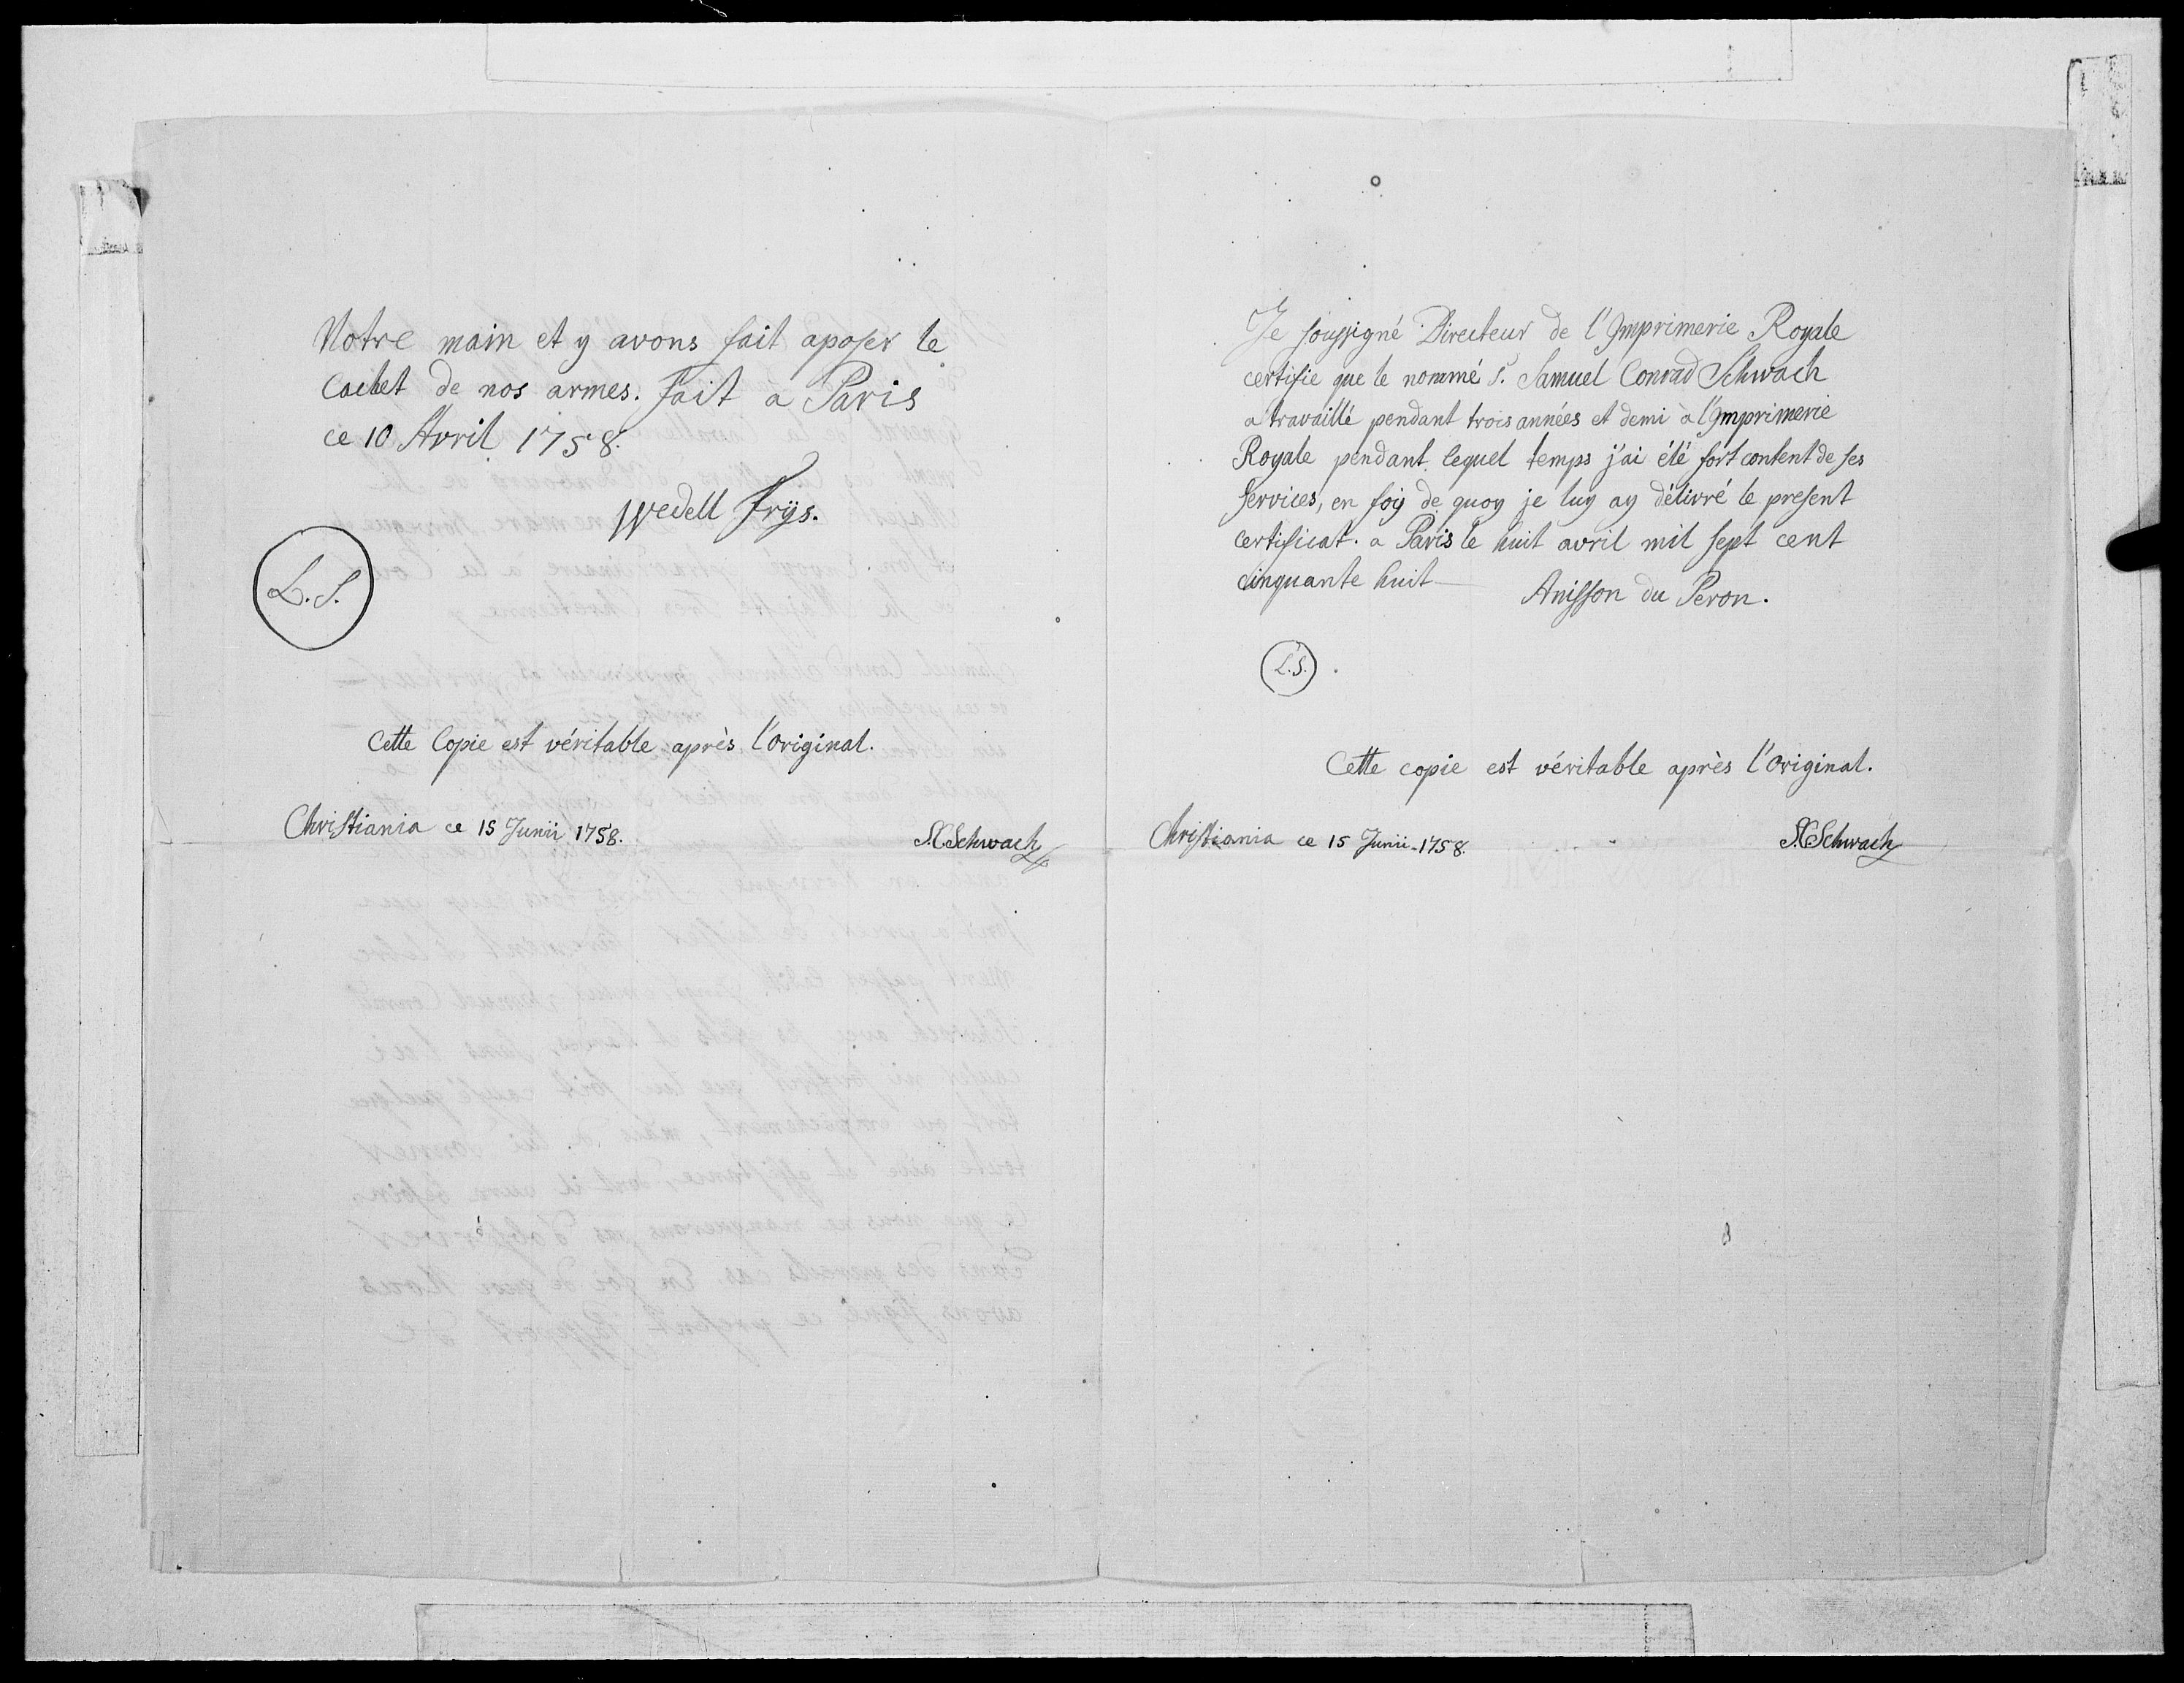 Notre main et y avons fait aposer le
Cachet de nos armes. fait à Paris
ce 10 Avril 1758.
Wedell Frÿs.
L. S.
Cette Copie est véritable après l'original.
Christiania ce 15 Junii 1758.
S.C. Schwach
Je soussigné Directeur de l'Imprimerie Royale
certifie que le nommé S. Samuel Conrad Schwach
a travaillé pendant trois années et demi à l'Imprimerie
Royale pendant lequel temps j'ai été fort content de ses
services, en foy de quoy je luy ay délivré le present
certificat. a Paris le huit avril mil sept cent
cinquante huit
Anisson du Peron.
L. S.
Cette copie est véritable après l'Original.
Christiania ce 15 Junii 1758.
S.C. Schwach